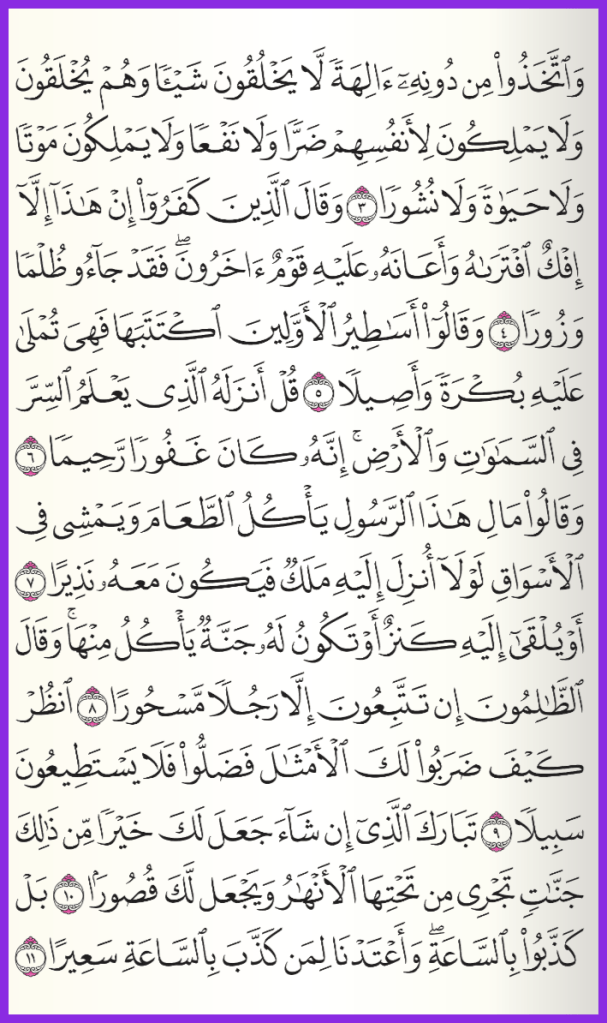 وَٱتَّخَذُوا۟ مِن دُونِهِۦٓ ءَالِهَةً لَّا يَخْلُقُونَ شَيْـًٔا وَهُمْ يُخْلَقُونَ
وَلَا يَمْلِكُونَ لِأَنفُسِهِمْ ضَرًّا وَلَا نَفْعًا وَلَا يَمْلِكُونَ مَوْتًا
وَلَا حَيَوٰةً وَلَا نُشُورًا ٣ وَقَالَ ٱلَّذِينَ كَفَرُوٓا۟ إِنْ هَـٰذَآ إِلَّآ
إِفْكٌ ٱفْتَرَىٰهُ وَأَعَانَهُۥ عَلَيْهِ قَوْمٌ ءَاخَرُونَ ۖ فَقَدْ جَآءُو ظُلْمًا
وَزُورًا ٤ وَقَالُوٓا۟ أَسَـٰطِيرُ ٱلْأَوَّلِينَ ٱكْتَتَبَهَا فَهِىَ تُمْلَىٰ
عَلَيْهِ بُكْرَةً وَأَصِيلًا ٥ قُلْ أَنزَلَهُ ٱلَّذِى يَعْلَمُ ٱلسِّرَّ
فِى ٱلسَّمَـٰوَٰتِ وَٱلْأَرْضِ ۚ إِنَّهُۥ كَانَ غَفُورًا رَّحِيمًا ٦
وَقَالُوا۟ مَالِ هَـٰذَا ٱلرَّسُولِ يَأْكُلُ ٱلطَّعَامَ وَيَمْشِى فِى
ٱلْأَسْوَاقِ لَوْلَآ أُنزِلَ إِلَيْهِ مَلَكٌ فَيَكُونَ مَعَهُۥ نَذِيرًا ٧
أَوْ يُلْقَىٰٓ إِلَيْهِ كَنزٌ أَوْ تَكُونُ لَهُۥ جَنَّةٌ يَأْكُلُ مِنْهَا ۚ وَقَالَ
ٱلظَّـٰلِمُونَ إِن تَتَّبِعُونَ إِلَّا رَجُلًا مَّسْحُورًا ٨ ٱنظُرْ
كَيْفَ ضَرَبُوا۟ لَكَ ٱلْأَمْثَـٰلَ فَضَلُّوا۟ فَلَا يَسْتَطِيعُونَ
سَبِيلًا ٩ تَبَارَكَ ٱلَّذِىٓ إِن شَآءَ جَعَلَ لَكَ خَيْرًا مِّن ذَٰلِكَ
جَنَّـٰتٍ تَجْرِى مِن تَحْتِهَا ٱلْأَنْهَـٰرُ وَيَجْعَل لَّكَ قُصُورًۢا ١٠ بَلْ
كَذَّبُوا۟ بِٱلسَّاعَةِ ۖ وَأَعْتَدْنَا لِمَن كَذَّبَ بِٱلسَّاعَةِ سَعِيرًا ١١